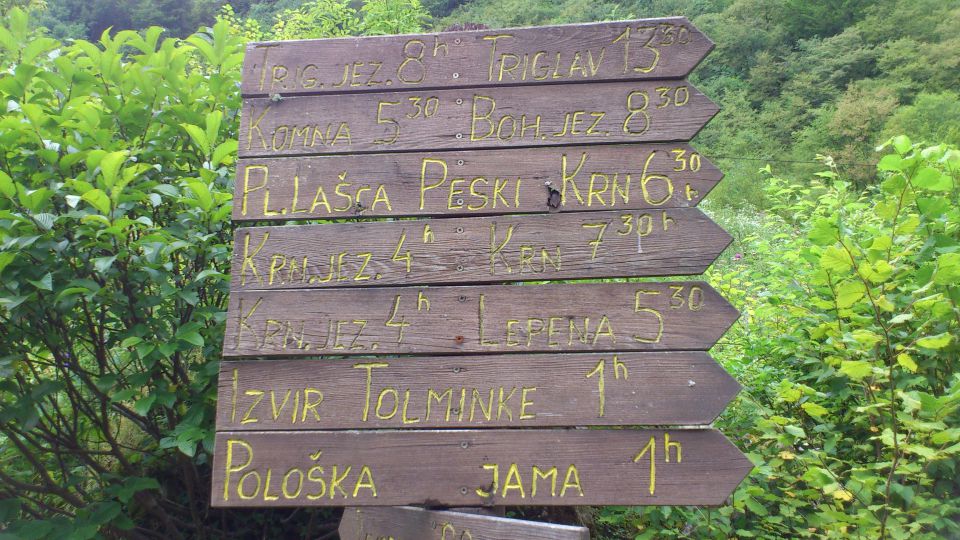 TRIG. JEZ. 8h TRIGLAV 13 30
KOMNA 5 30 BOH. JEZ. 8 30
PL. LAŠCA PESKI KRN 6 30 h
KRN. JEZ. 4h KRN 7 30 h
KRN. JEZ. 4h LEPENA 5 30
IZVIR TOLMINKE 1h
POLOŠKA JAMA 1h